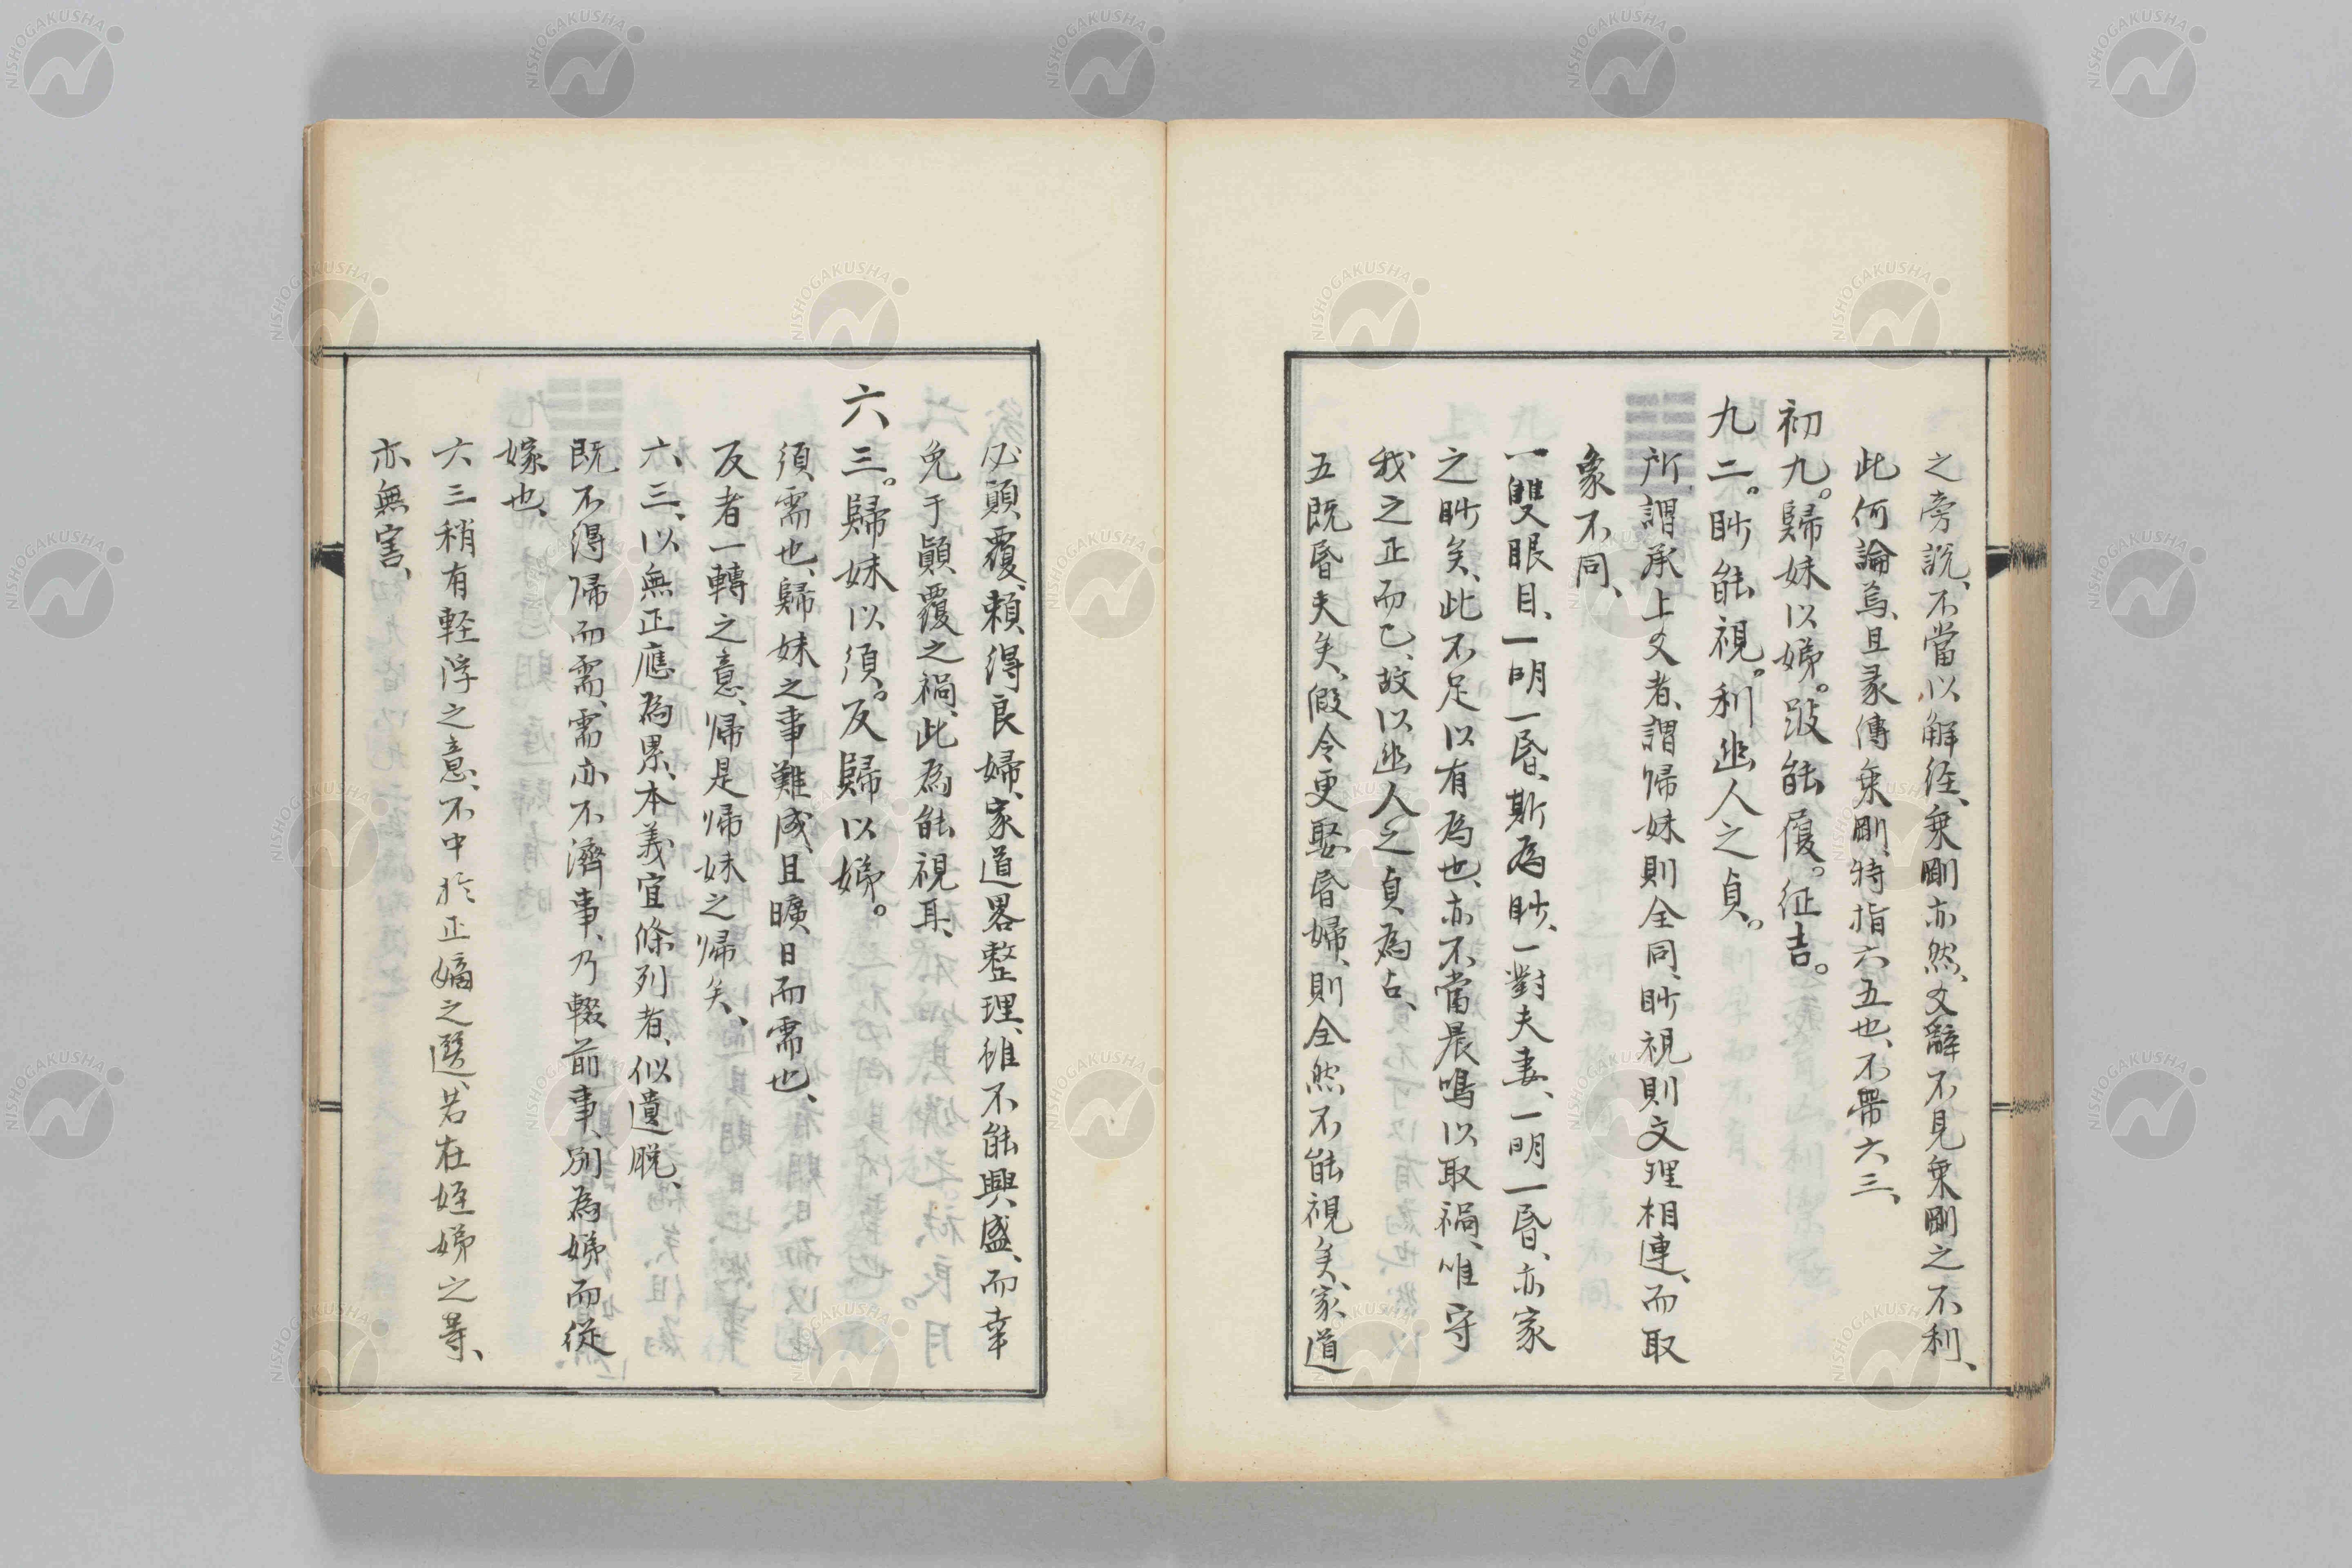 之旁説、不當以解経、乗剛亦然、爻辭不見乗剛之不利、
此何論焉、且彖傳乗剛、特指六五也、不帶六三、
初九。歸妹以娣。跛能履。征吉。
九二。眇能視。利幽人之貞。
所謂承上爻者、謂帰妹則全同、眇視則文理相連、而取
象不同、
一雙眼目、一明一昏、斯為眇、一對夫妻、一明一昏、亦家
之眇矣、此不足以有為也、亦不當晨鳴以取禍、唯守
我之正而已、故以幽人之貞為占、
五既昏夫矣、假令更娶昏婦、則全然不能視矣、家道
必顛覆、頼得良婦、家道畧整理、雖不能興盛、而幸
免于顛覆之禍、此為能視耳、
六三。歸妹以須。反歸以娣。
須需也、歸妹之事難成、且曠日而需也、
反者一轉之意、帰是帰妹之帰矣、
六三、以無正應為累、本義宜條列者、似遺脱、
既不得帰而需、需亦不濟事、乃輟前事、別為娣而従
嫁也、
六三稍有軽浮之意、不中於正嫡之選、若在姪娣之等、
亦無害、
NISHOGAKUSHA